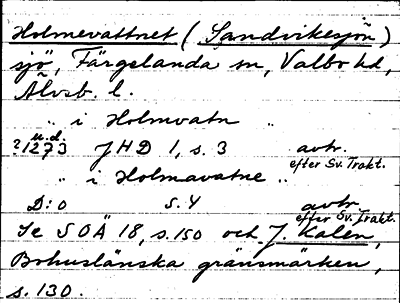 Holmevattnet (Sandvikesjön)
sjö, Färgelanda sn, Valbo hd,
Älvsb. l.
" i Holmvatn "
u.d.
?1273 JHD 1, s. 3 avtr.
efter Sv. Trakt.
" i Holmavatne "
D:o s. 4 avtr.
efter Sv. Trakt.
Se SOÄ 18, s. 150 och J. Kalén,
Bohuslänska gränsmärken,
s. 130.